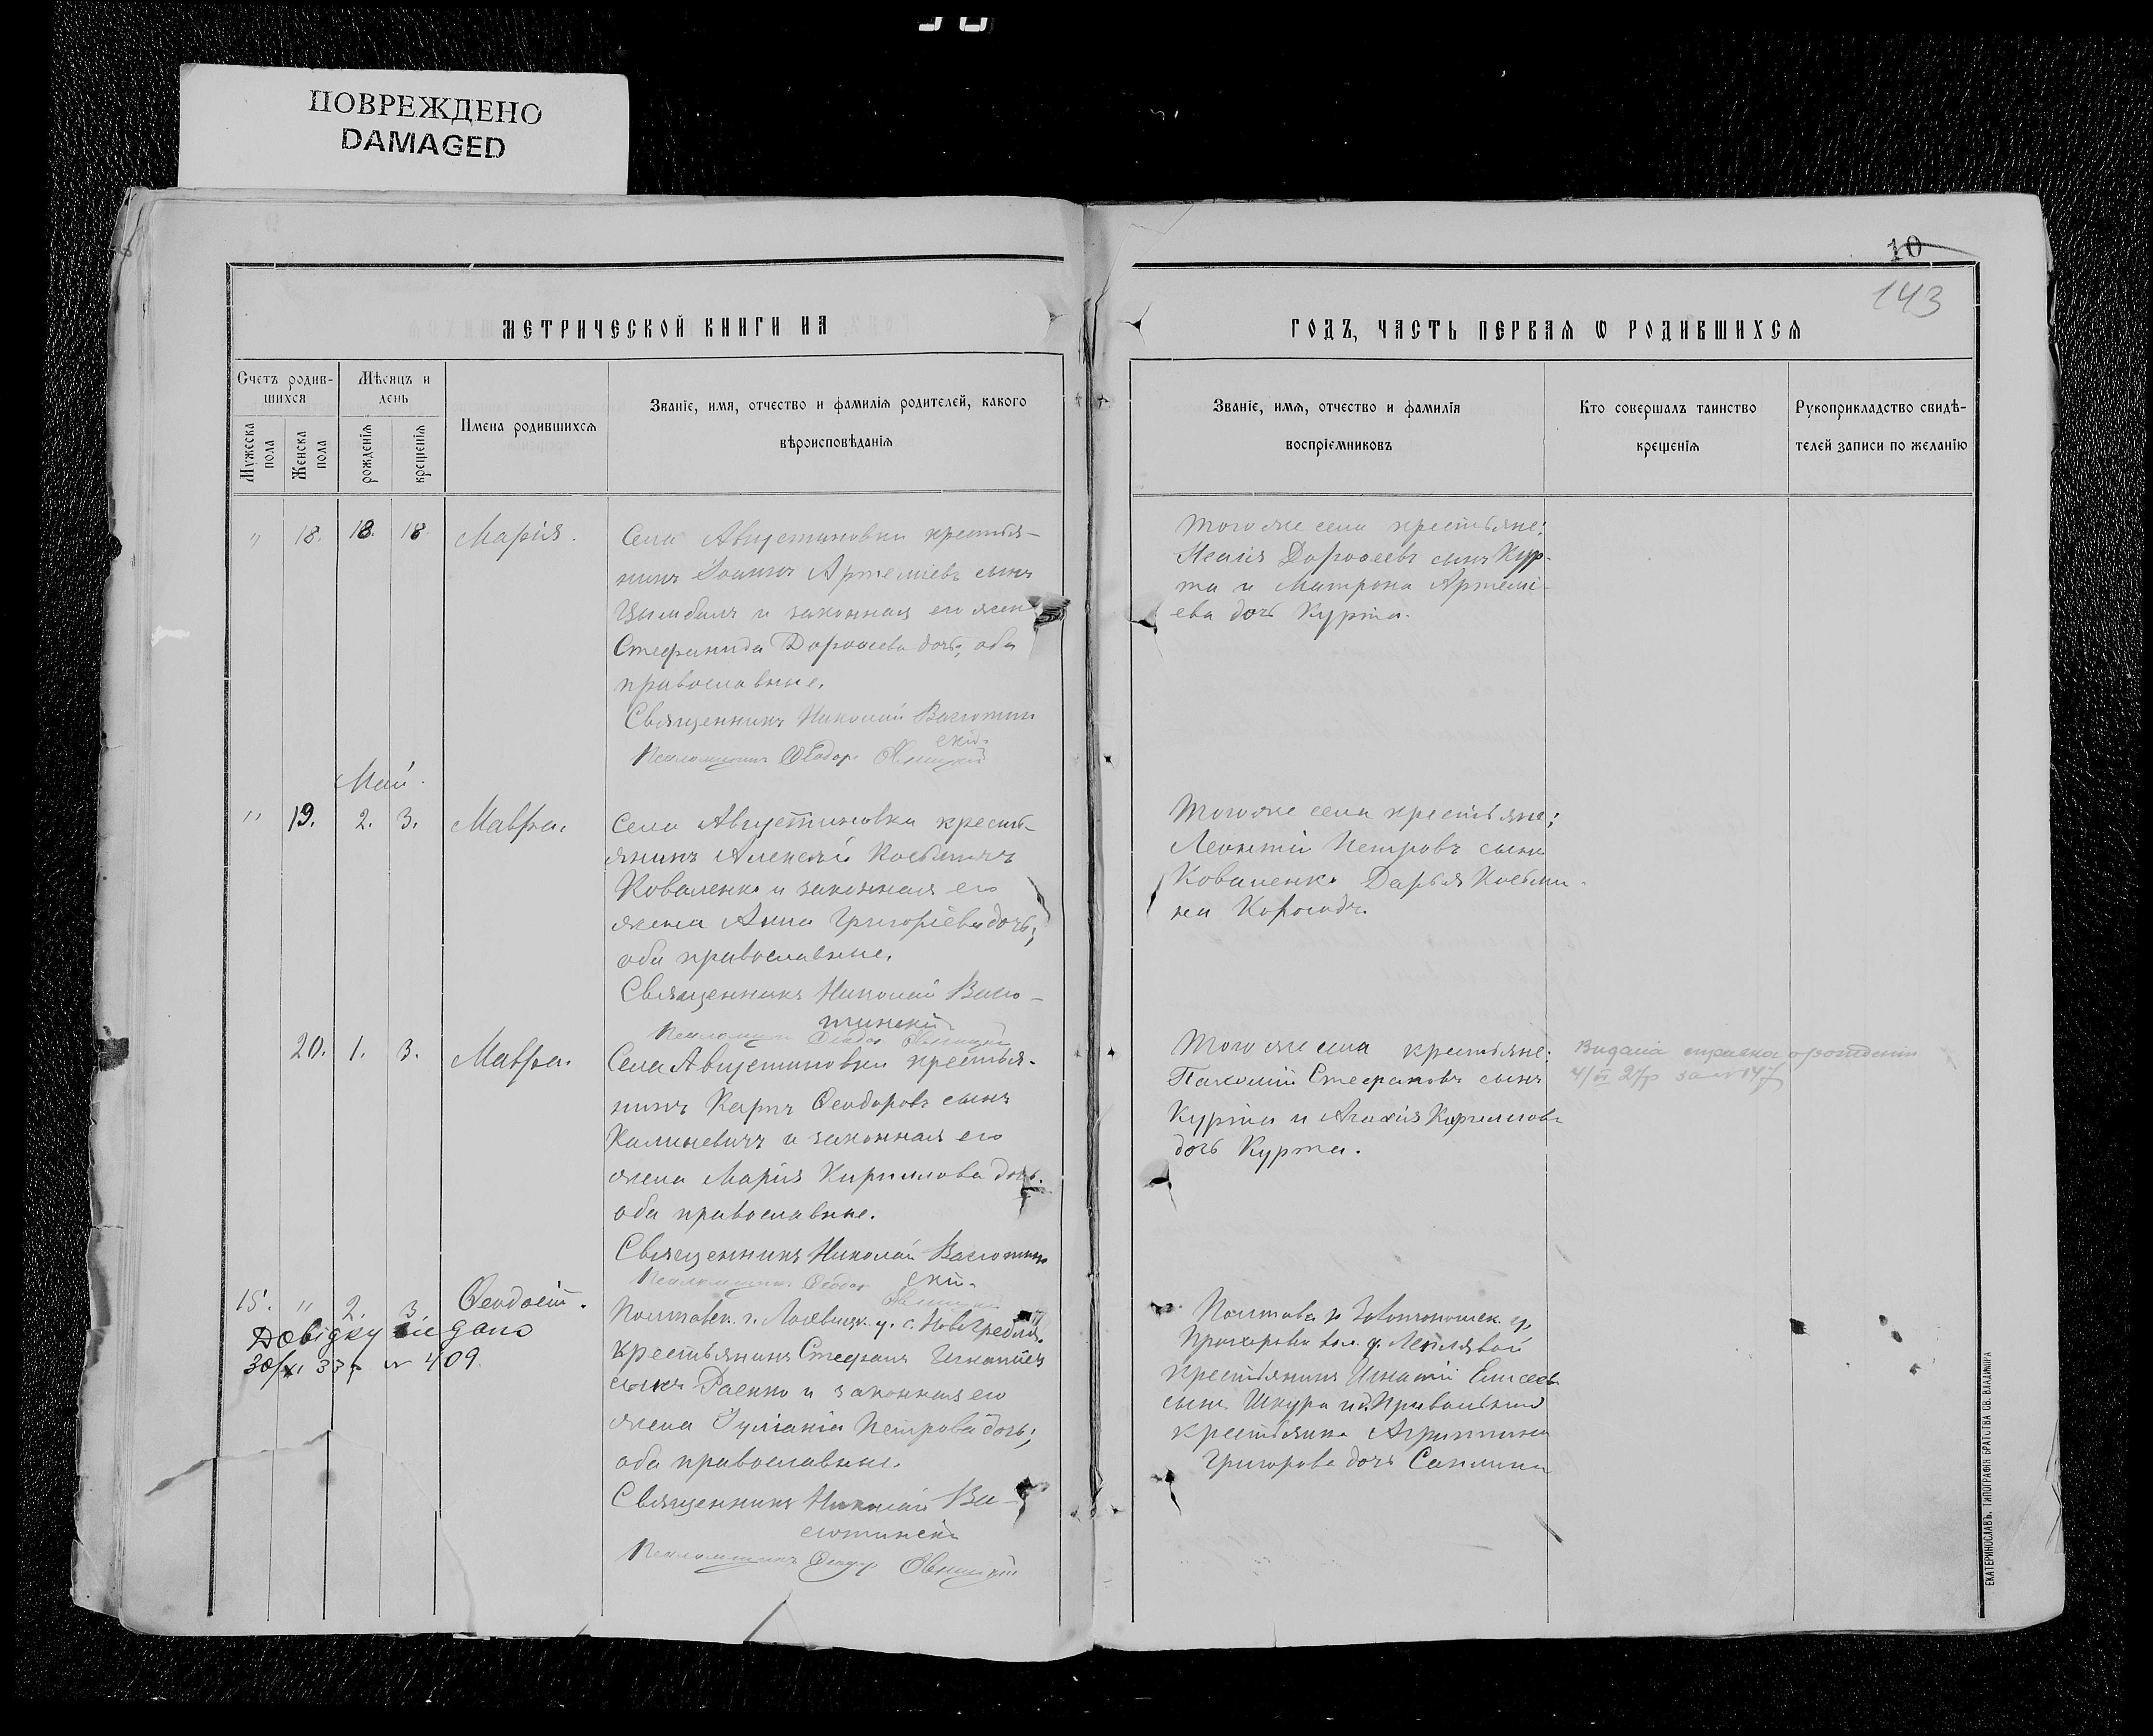 ПОВРЕЖДЕНО
DAMAGED
10
143
МЕТРИЧЕСКОЙ КНИГИ НА
ГОДЪ, ЧАСТЬ ПЕРВАЯ Ѡ РОДИВШИХСЯ
Счетъ родив-
шихся
Мужеска пола
Женска пола
Мѣсяцъ и
день
рожденія
крещенія
Имена родившихся
Званіе, имя, отчество и фамилія родителей, какого
вѣроисповѣданія
Званіе, имя, отчество и фамилія
воспріемниковъ
Кто совершалъ таинство
крещенія
Рукоприкладство свидѣ-
телей записи по желанію
" 18. 18. 18. Марія.
Села Августиновки крестья-
нинъ Іоаннъ Артеміевъ сынъ
Цымбалъ и законная его жен
Стефанида Дороѳеева дочь, оба
православные.
Священникъ Николай Васютин
скій
Псаломщикъ Ѳеодоръ
Того же села крестьяне:
Дороѳеевъ сынъ Кур-
та и Матрона Артемі-
ева дочь Курта.
Май.
" 19. 2. 3. Мавра.
Села Августиновки кресть-
янинъ Алексѣй Косьминъ
Коваленко и законная его
жена Анна Григоріева дочь;
оба православные.
Священникъ Николай Васю-
тинскій
Псаломщикъ Ѳеодоръ
Того же села крестьяне:
Леонтій Петровъ сынъ
Коваленко Дарья Косьми-
на
20. 1. 3. Мавра.
Села Августиновки крестья-
нинъ Карпъ Ѳеодоровъ сынъ
Калиневичъ и законная его
жена Марія Кириллова дочь.
оба православные.
Священникъ Николай Васютин
скій
Псаломщикъ Ѳеодоръ
Того же села крестьяне:
Пахомій Стефановъ сынъ
Курта и
дочь Курта.
Видана справка о рождении
15. " 2. 3. Ѳеодосій.
30/XI 33 р № 409.
Полтавск. г. Лохвицк. у. с.
крестьянинъ Стефанъ Игнатіев
сынъ Раенко и законная его
жена Іуліанія Петрова дочь;
оба православные.
Священникъ Николай Ва-
сютинскій
Псаломщикъ Ѳеодоръ
Полтавс. г. Золотоношск. у.
вол. д.
крестьянинъ Игнатій Елисеев
сынъ Шкура и с. Привольнаго
крестьянка Агриппина
Григорова дочь
ЕКАТЕРИНОСЛАВЪ. ТИПОГРАФІЯ БРАТСТВА СВ. ВЛАДИМІРА